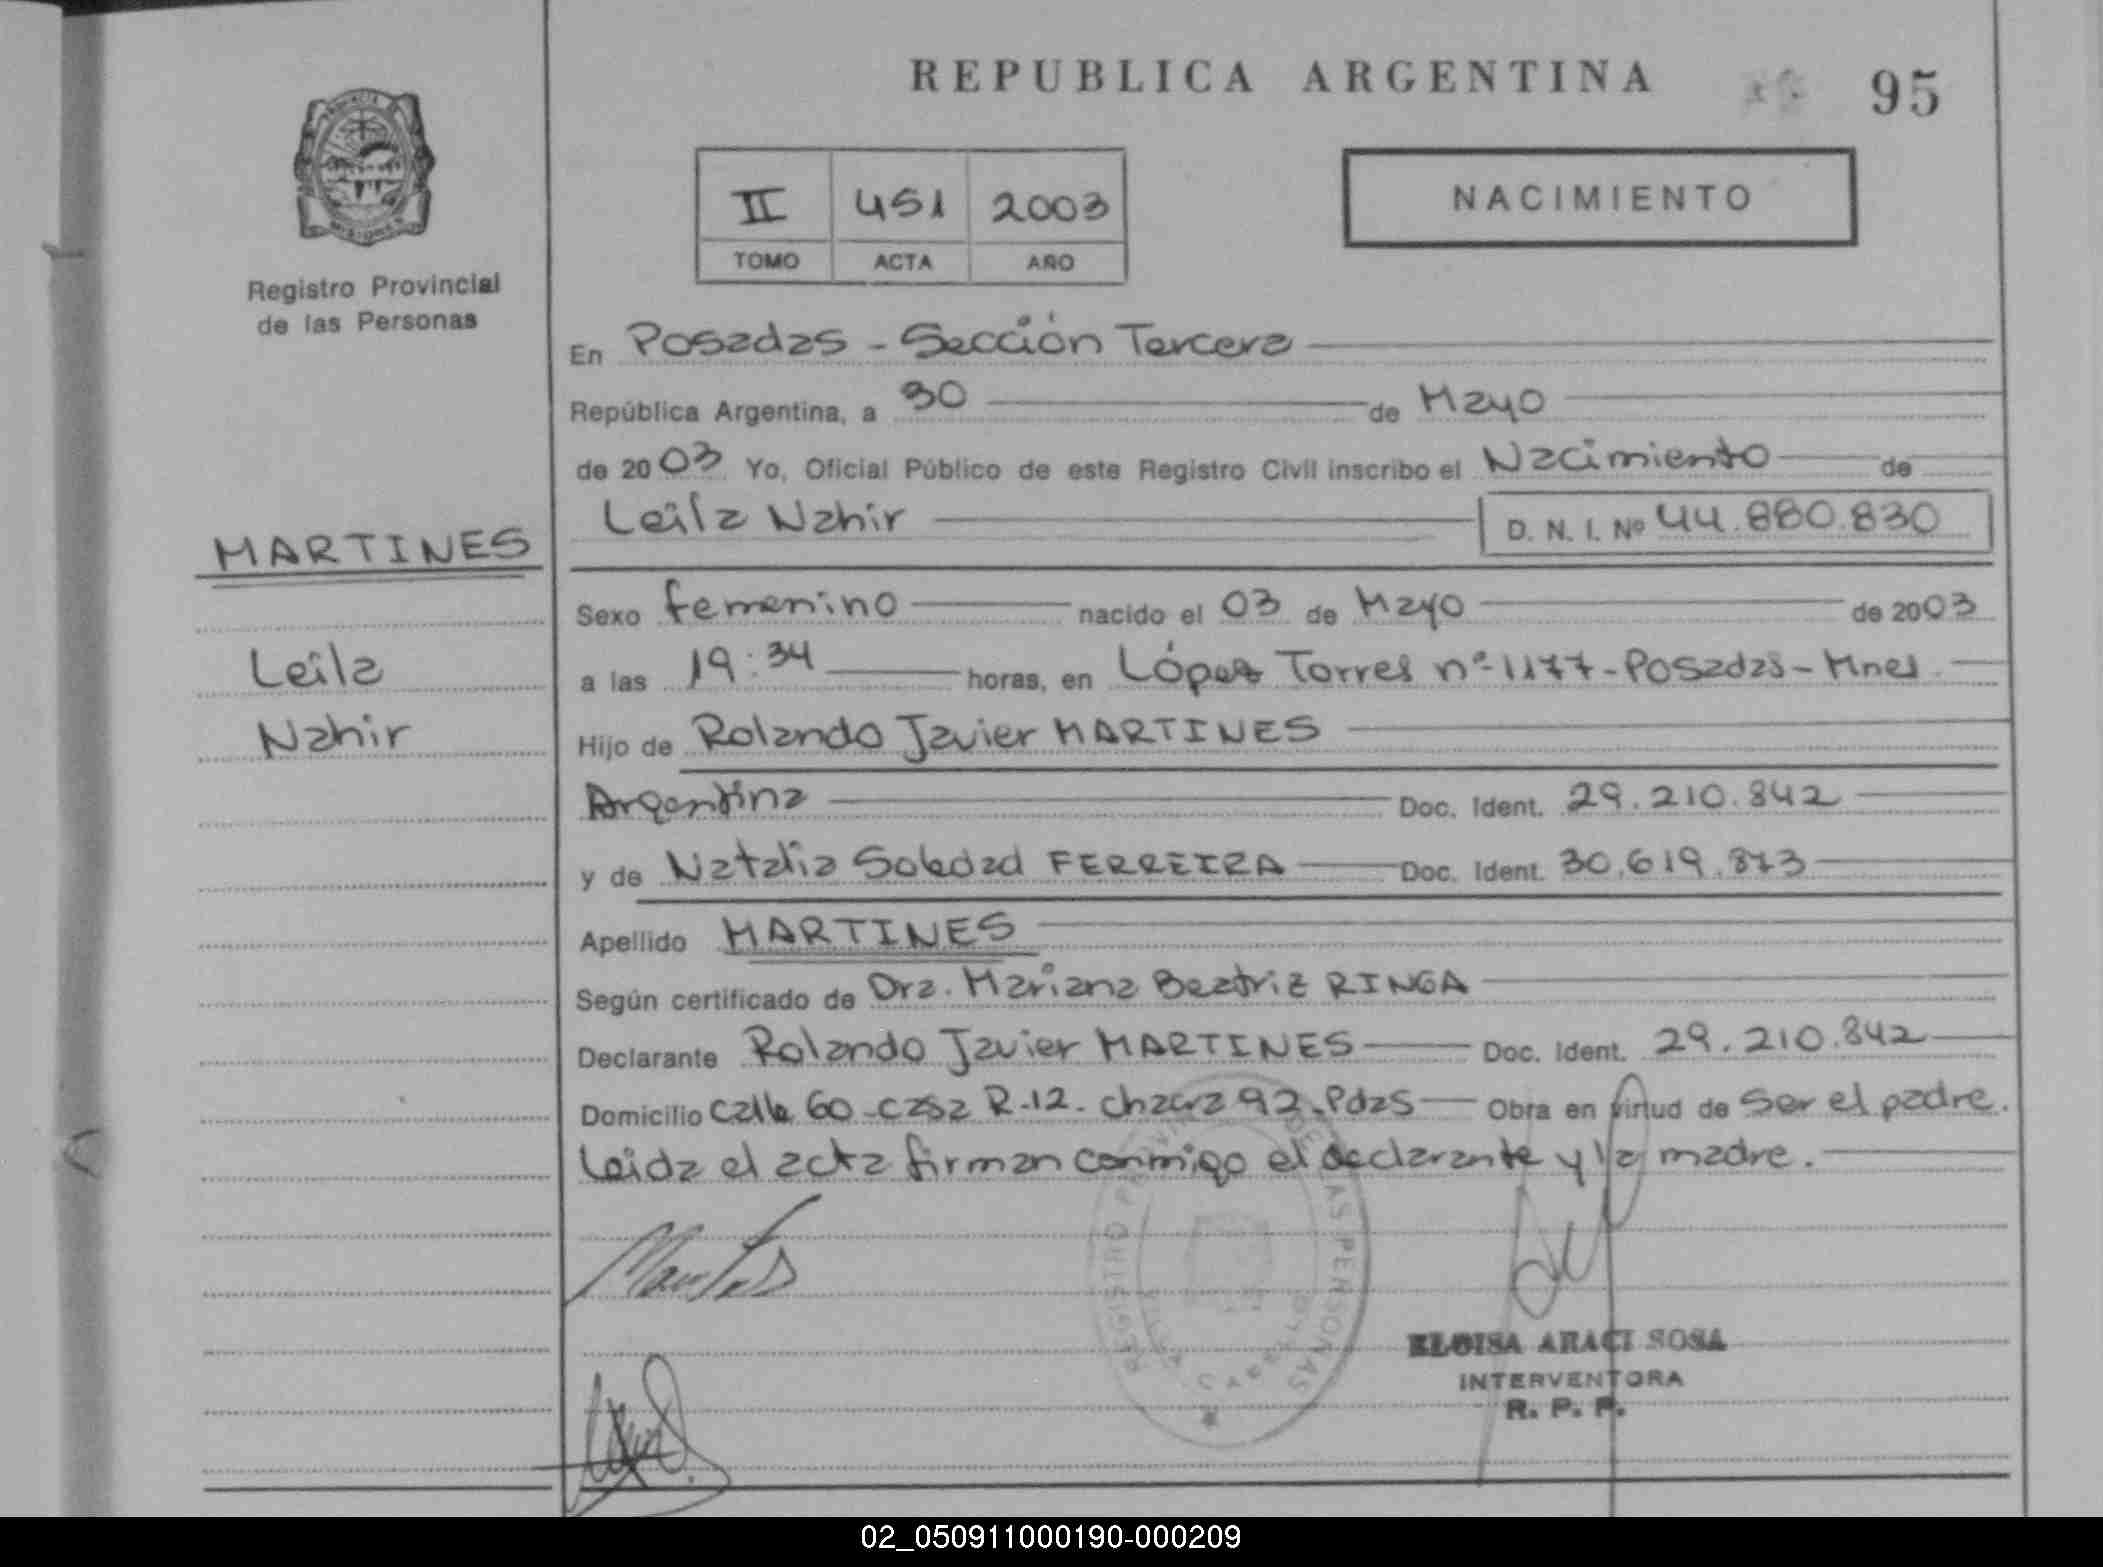 REPUBLICA ARGENTINA
95
II 451 2003
TOMO ACTA AÑO
NACIMIENTO
Registro Provincial
de las Personas
En Posadas - Sección Tercera
República Argentina, a 30 de Mayo
de 2003 Yo, Oficial Público de este Registro Civil inscribo el Nacimiento de
Leila Nahir D. N. I. Nº 44.880.830
MARTINES
Leila
Nahir
Sexo femenino nacido el 03 de Mayo de 2003
a las 19:34 horas, en López Torres nº 1177-Posadas-Mnes
Hijo de Rolando Javier MARTINES
Argentina Doc. Ident. 29.210.842
y de Natalia Soledad FERREIRA Doc. Ident. 30.619.873
Apellido MARTINES
Según certificado de Dra. Mariana Beatriz RINGA
Declarante Rolando Javier MARTINES Doc. Ident. 29.210.842
Domicilio calle 60-casa R-12. chacra 92.Pdas Obra en virtud de ser el padre.
Leida el acta firman conmigo el declarante y la madre.
REGISTRO PROVINCIAL DE LAS PERSONAS
ELOISA ARACI SOSA
INTERVENTORA
R. P. P.
02_050911000190-000209